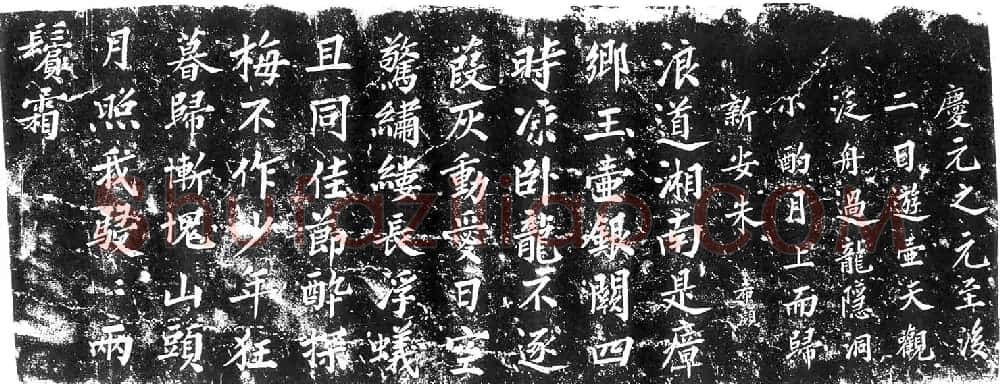 慶元之元至後
二日遊壺天觀
泛舟過龍隱洞
小酌月上而歸
新安朱希顔
浪道湘南是瘴
鄉玉壺銀闕四
時凉卧龍不逐
葭灰動愛日空
驚繡縷長浮蟻
且同佳節醉採
梅不作少年狂
暮歸慚愧山頭
月照我駸〻兩
鬢霜
Shufaziliao.COM